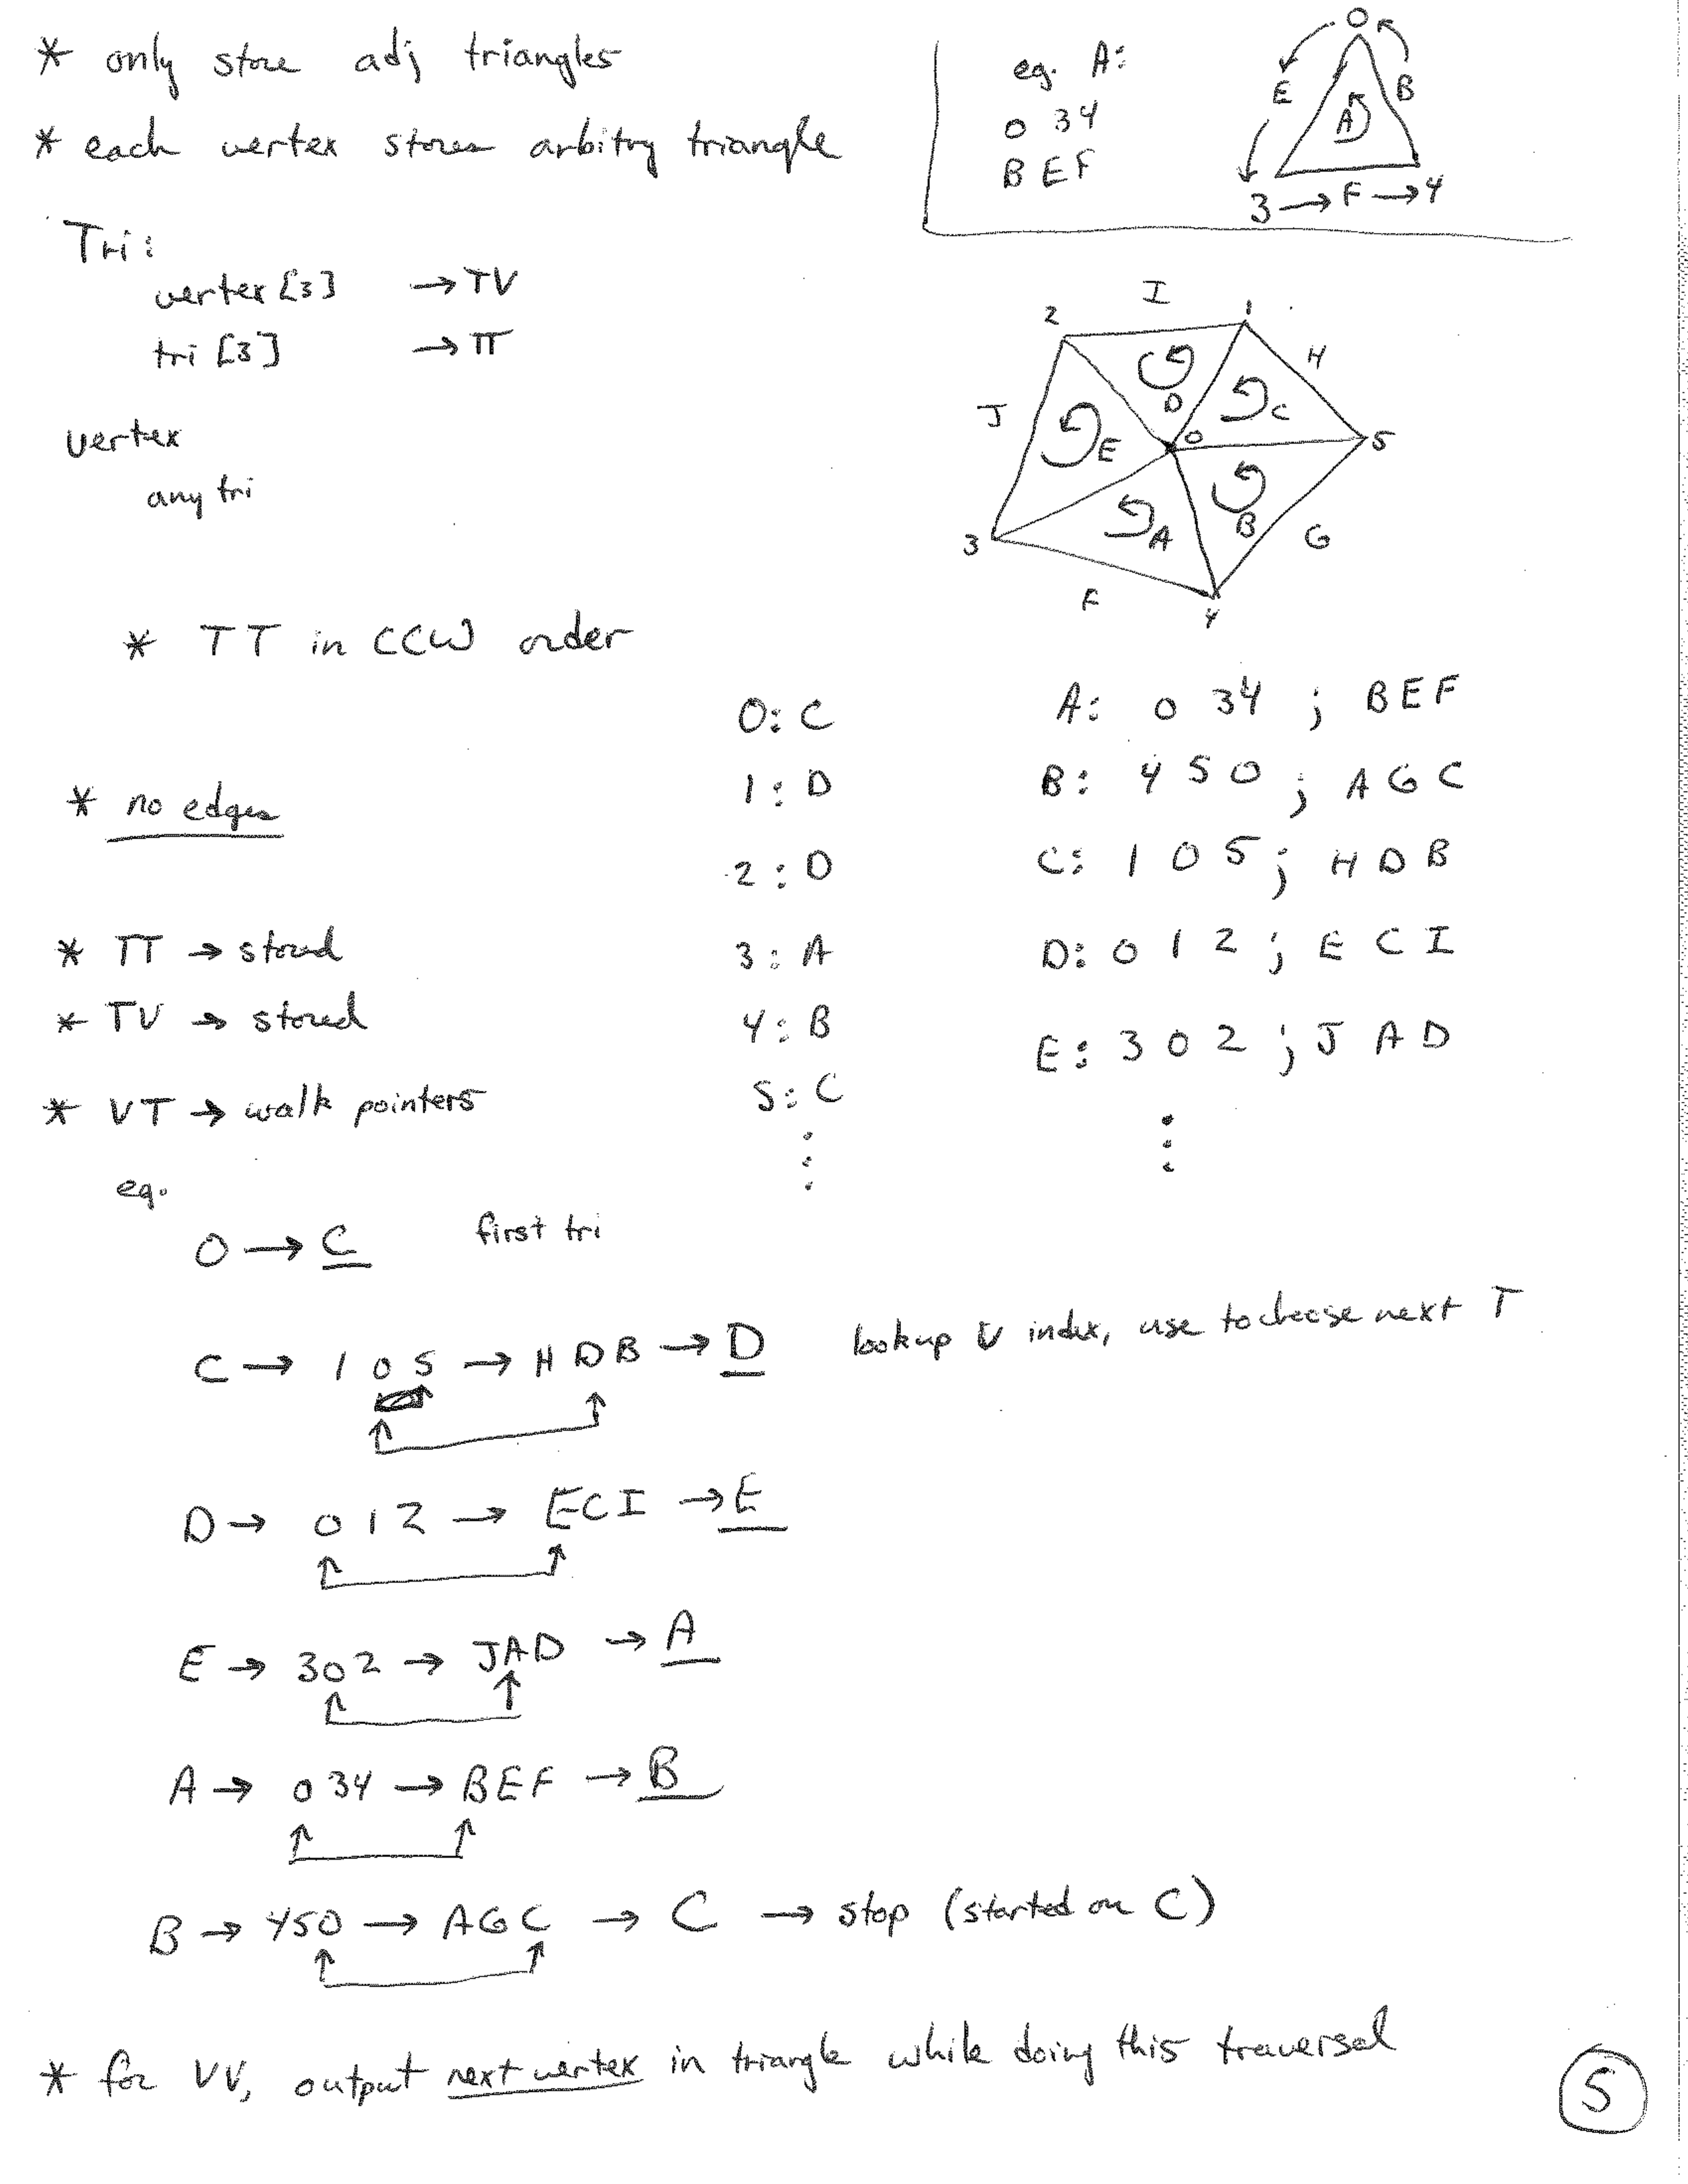 * only store adj triangles
* each vertex stores arbitry triangle
eg. A:
0 3 4
B E F
O
E
B
A
3 → F → 4
Tri:
vertex [3] → TV
tri [3] → TT
vertex
any tri
I
2
1
H
J
D
C
E
0
5
B
A
3
G
F
4
* TT in CCW order
* no edges
* TT → stored
* TV → stored
* VT → walk pointers
0: C
1: D
2: D
3: A
4: B
5: C
⋮
A: 0 3 4 ; B E F
B: 4 5 0 ; A G C
C: 1 0 5 ; H D B
D: 0 1 2 ; E C I
E: 3 0 2 ; J A D
⋮
eg.
0 → C first tri
C → 1 0 5 → H D B → D lookup V index, use to choose next T
D → 0 1 2 → E C I → E
E → 3 0 2 → J A D → A
A → 0 3 4 → B E F → B
B → 4 5 0 → A G C → C → stop (started on C)
* for VV, output next vertex in triangle while doing this traversal
5